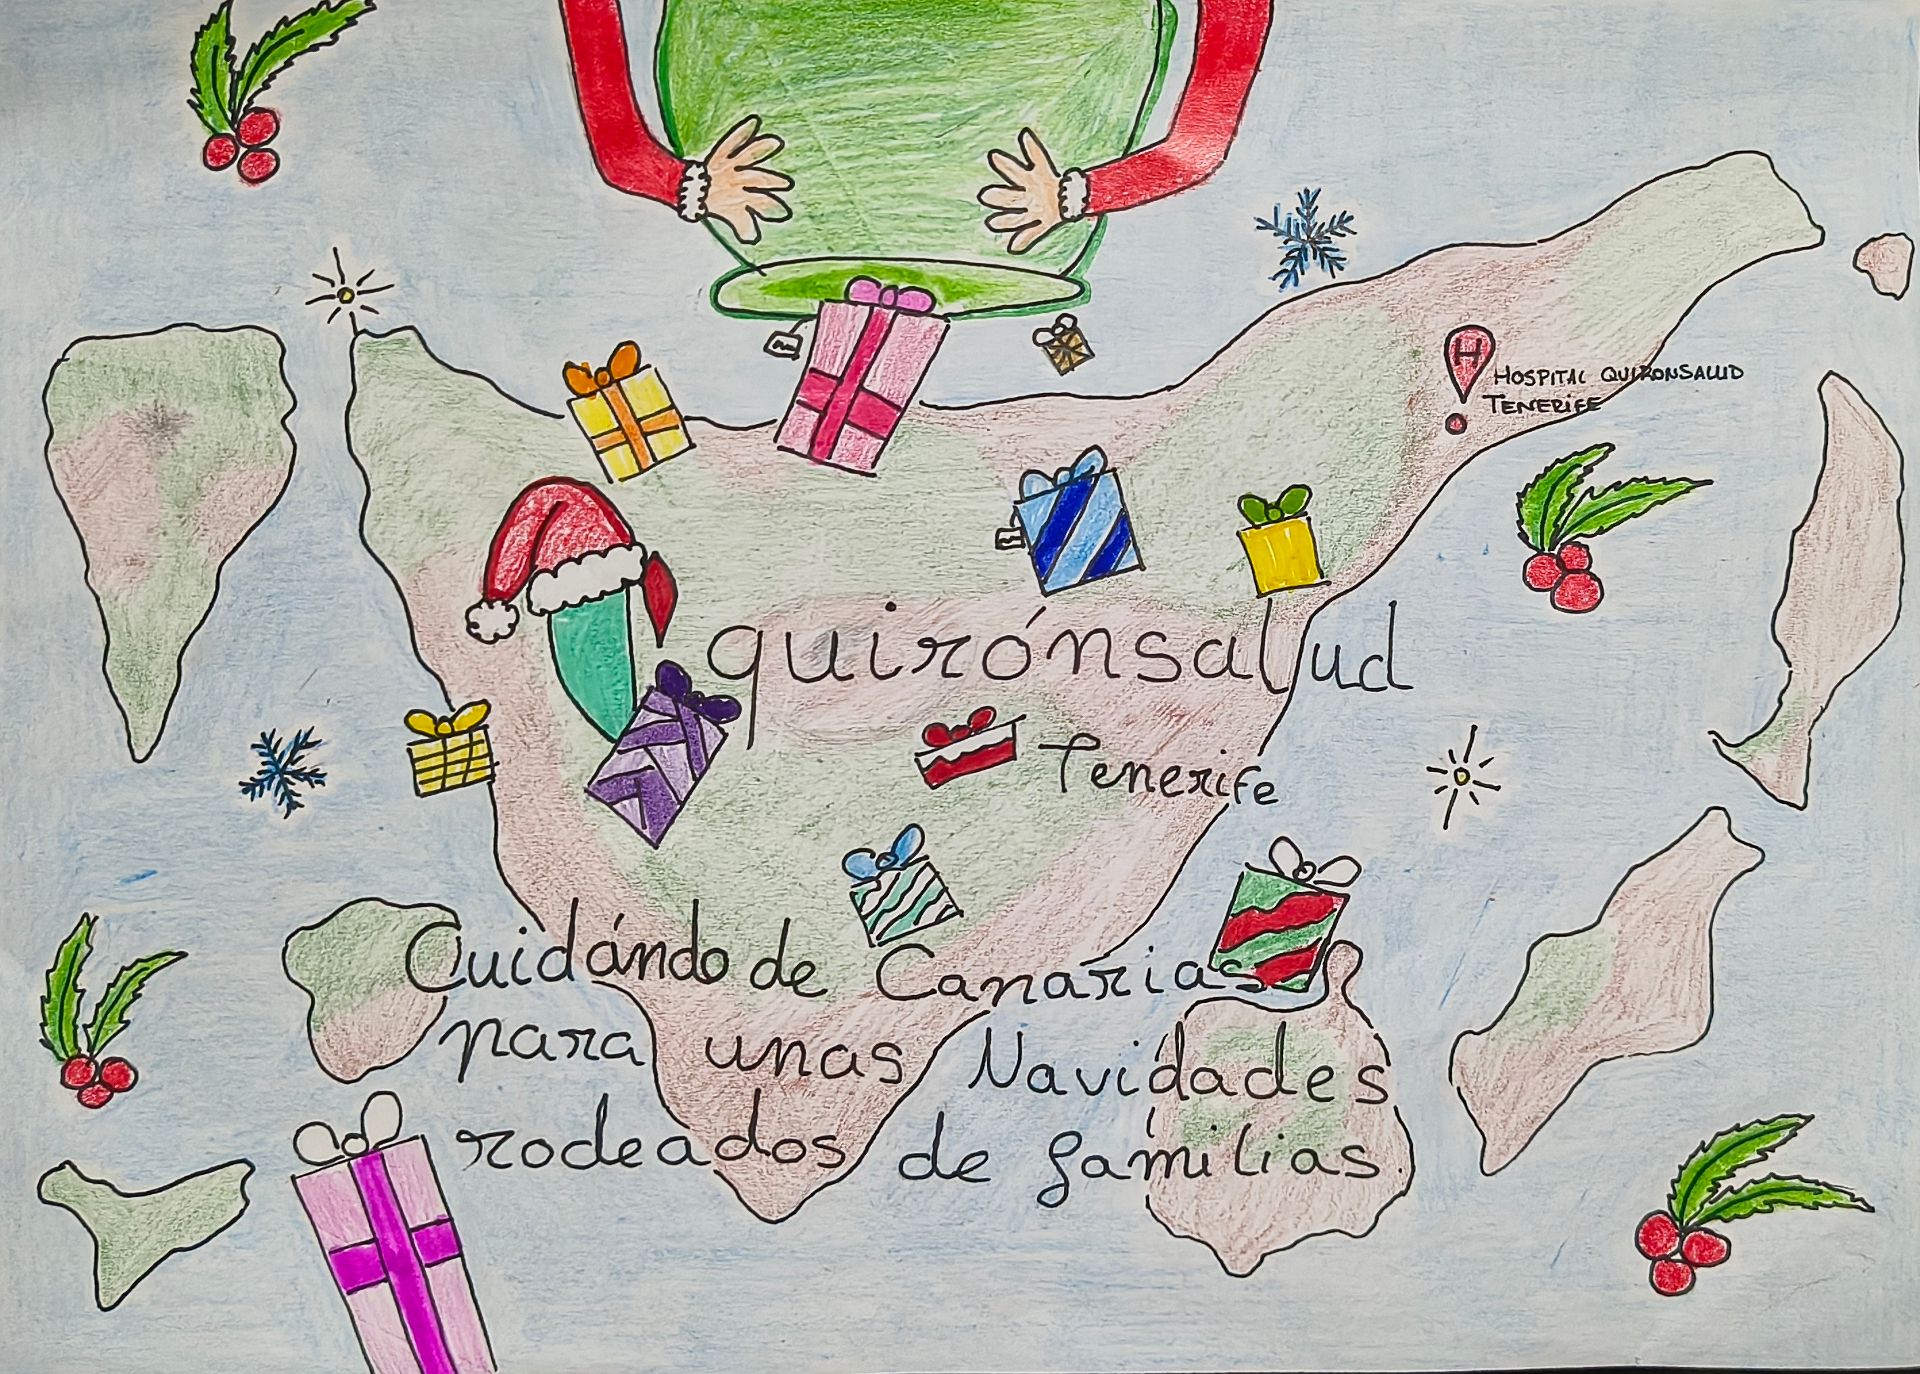 H
HOSPITAL QUIRONSALUD
TENERIFE
quirónsalud
Tenerife
Cuidándo de Canarias
para unas Navidades
rodeados de familias.